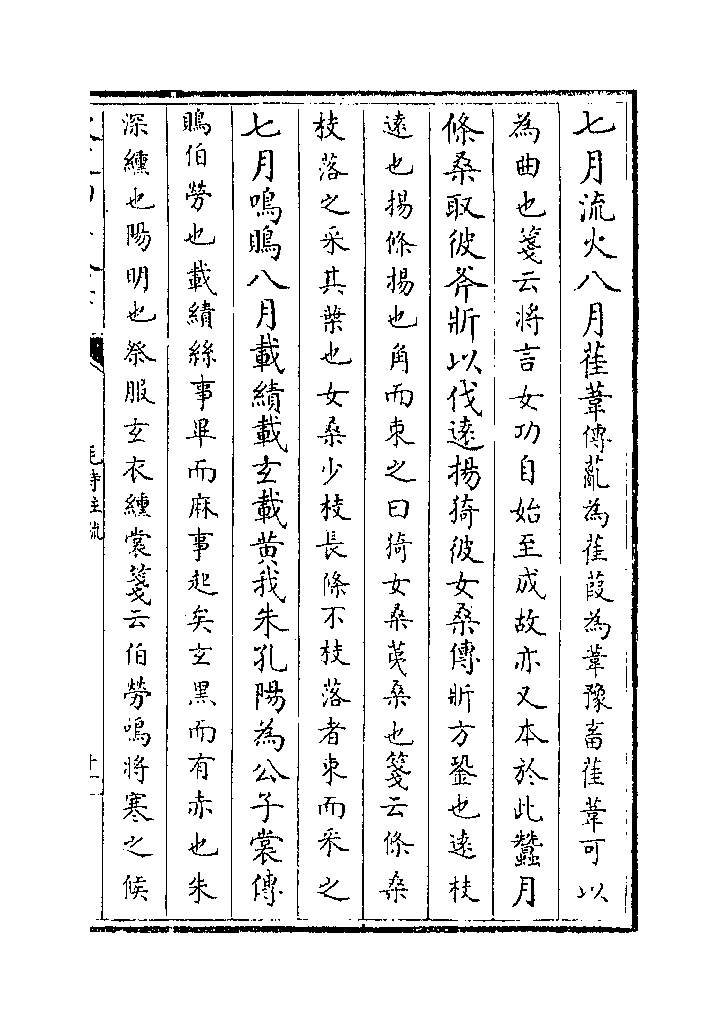 七月流火八月萑葦傳薍為萑葭為葦豫畜萑葦可以
為曲也箋云將言女功自始至成故亦又本於此蠶月
條桑取彼斧斨以伐遠揚猗彼女桑傳斨方銎也遠枝
遠也揚條揚也角而束之曰猗女桑荑桑也箋云條桑
枝落之采其葉也女桑少枝長條不枝落者束而采之
七月鳴鵙八月載績載玄載黄我朱孔陽為公子裳傳
鵙伯勞也載績絲事畢而麻事起矣玄黑而有赤也朱
深纁也陽明也祭服玄衣纁裳箋云伯勞鳴將寒之候
毛詩注疏